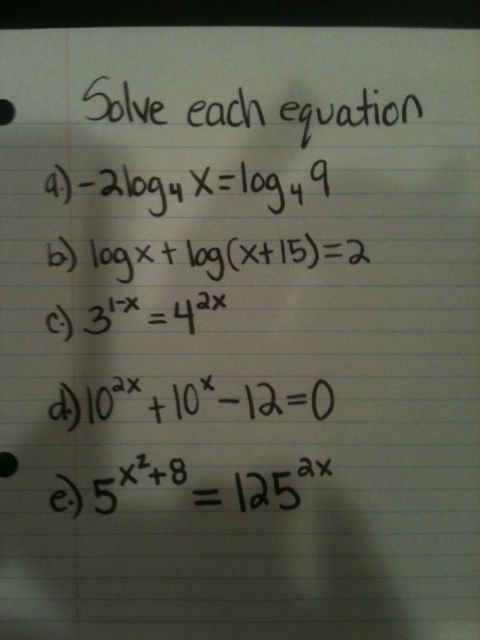 Solve each equation
a.) -2log₄ X = log₄ 9
b.) logx + log(x+15) = 2
c.) 3^(1-x) = 4^(2x)
d.) 10^(2x) + 10^x - 12 = 0
e.) 5^(x²+8) = 125^(2x)